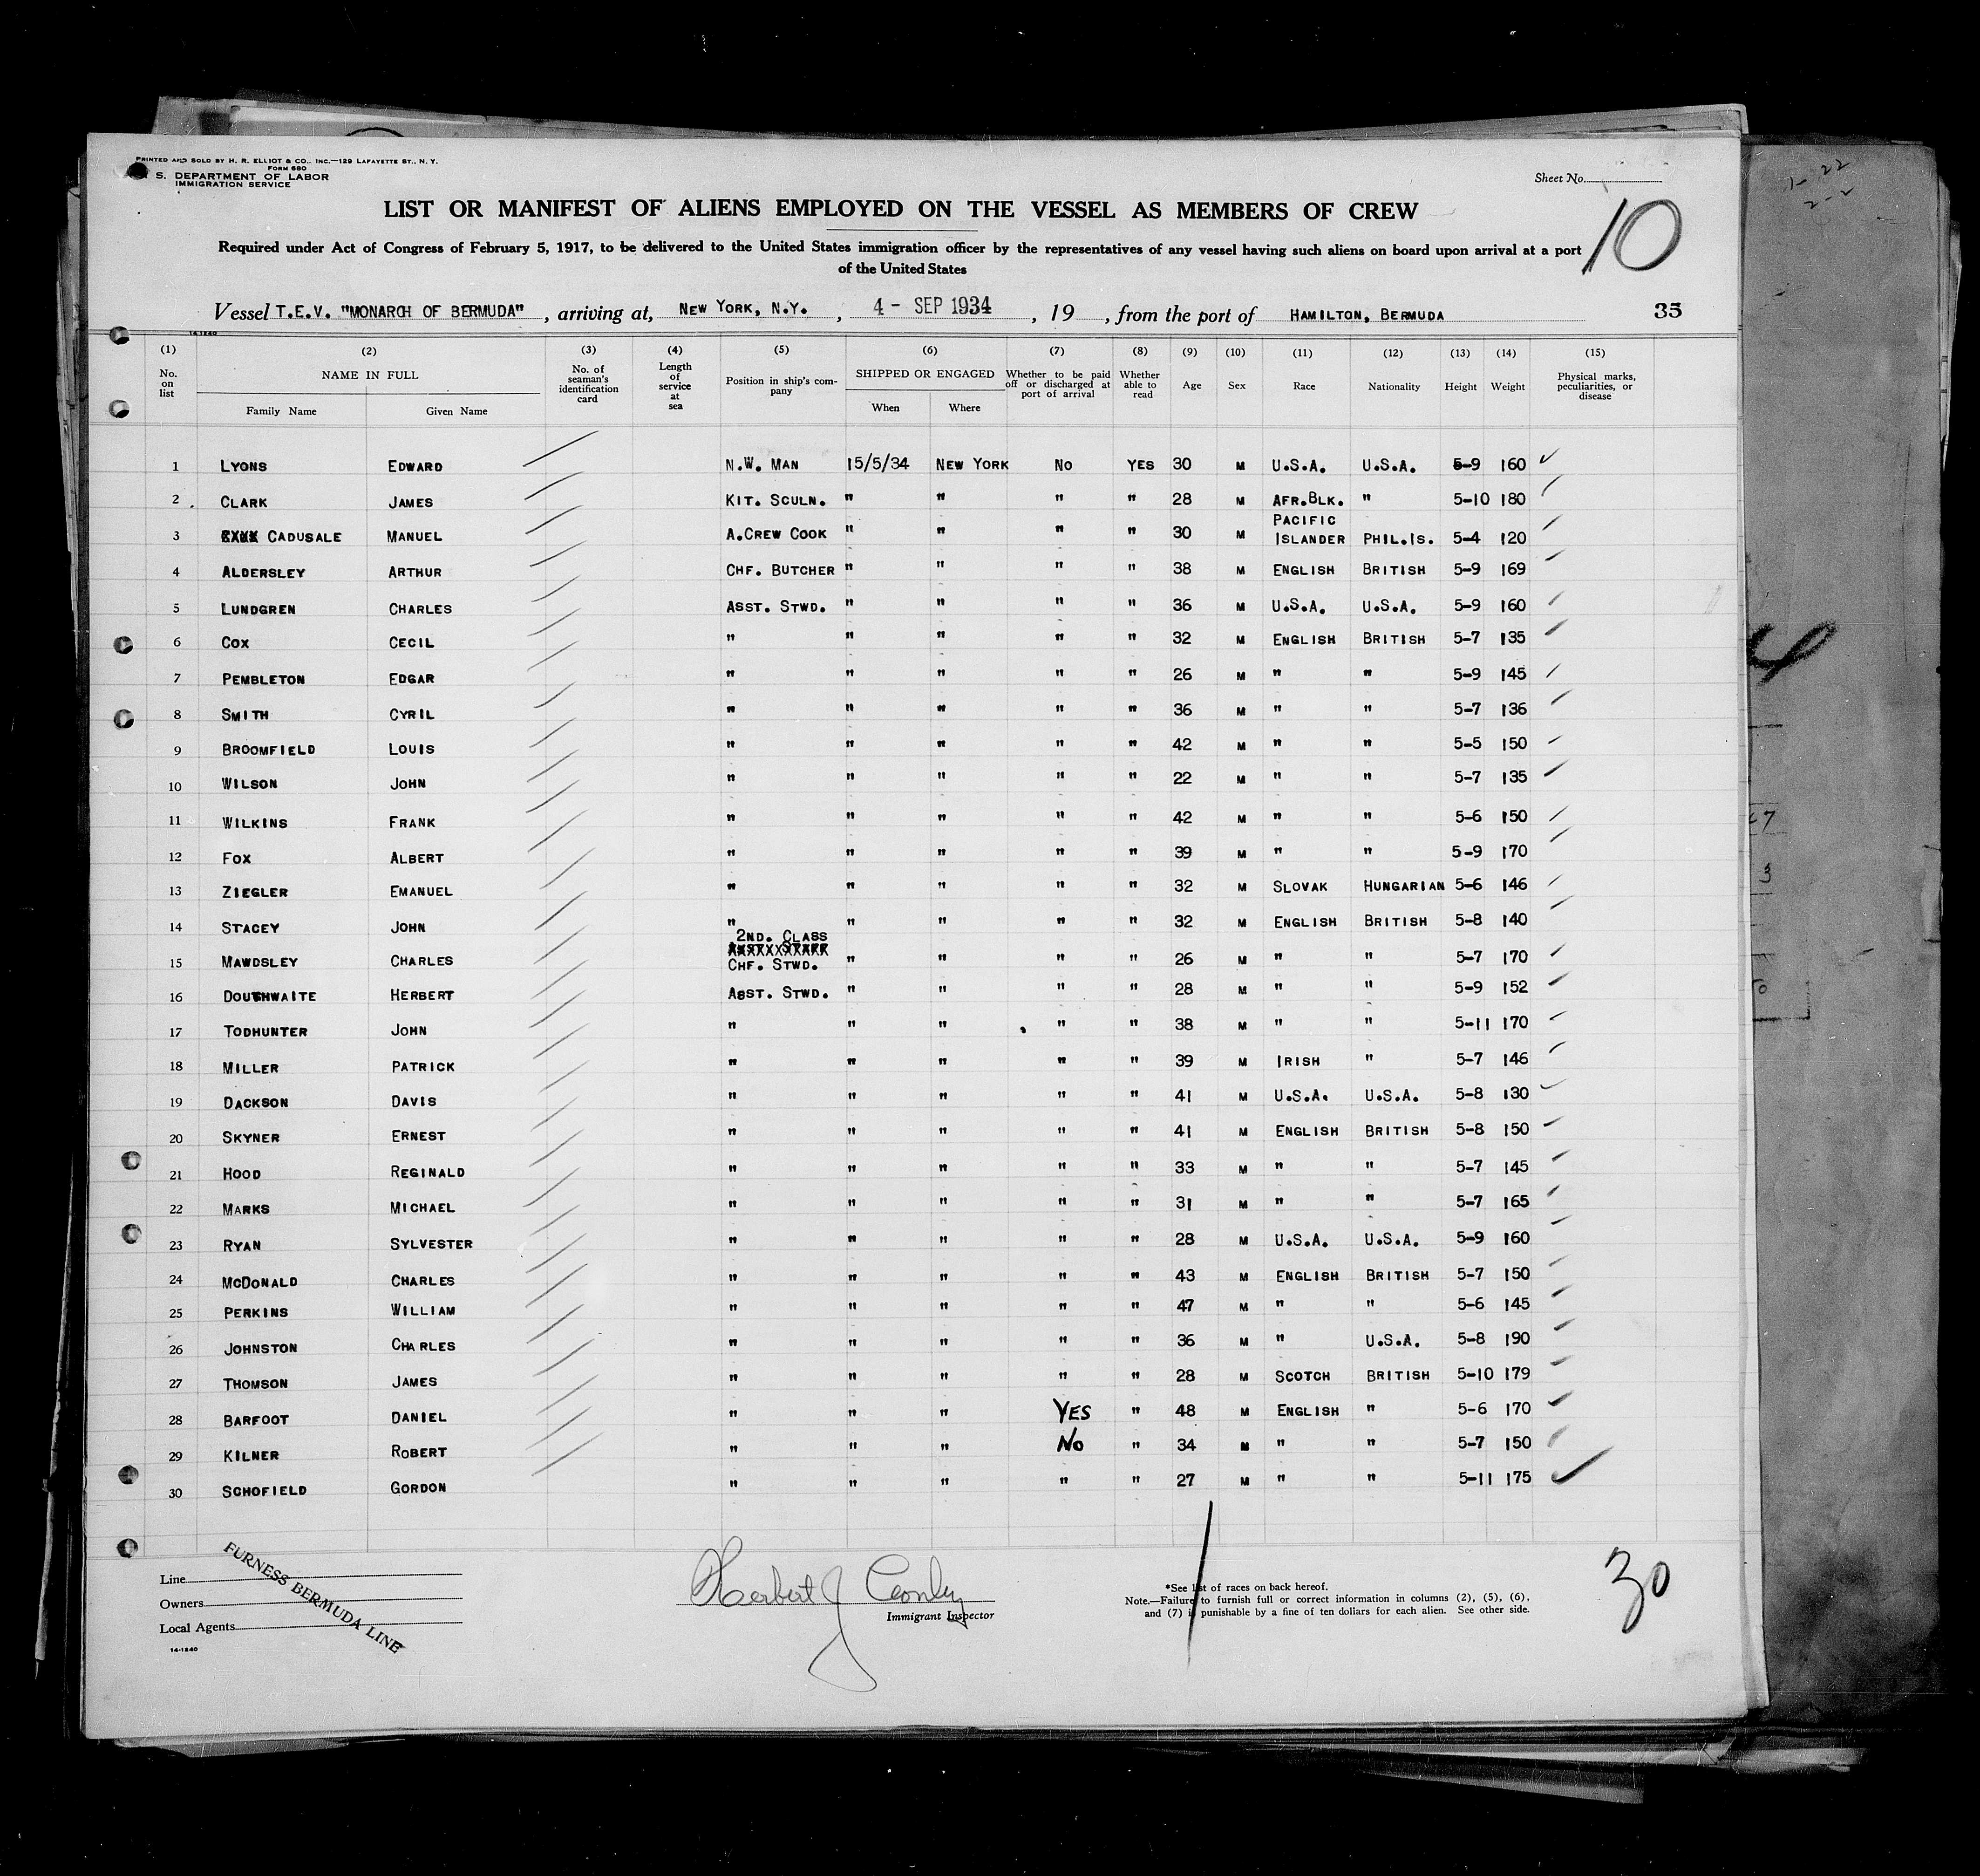 PRINTED AND SOLD BY H. R. ELLIOT & CO., INC.—129 LAFAYETTE ST., N. Y.
FORM 680
S. DEPARTMENT OF LABOR
IMMIGRATION SERVICE
Sheet No.
10
LIST OR MANIFEST OF ALIENS EMPLOYED ON THE VESSEL AS MEMBERS OF CREW
Required under Act of Congress of February 5, 1917, to be delivered to the United States immigration officer by the representatives of any vessel having such aliens on board upon arrival at a port
of the United States
Vessel T.E.V. "MONARCH OF BERMUDA", arriving at, NEW YORK, N.Y., 4 - SEP 1934, 19, from the port of HAMILTON, BERMUDA 35
14-1240
(1) (2) (3) (4) (5) (6) (7) (8) (9) (10) (11) (12) (13) (14) (15)
No. on list NAME IN FULL Family Name Given Name No. of seaman's identification card Length of service at sea Position in ship's company SHIPPED OR ENGAGED When Where Whether to be paid off or discharged at port of arrival Whether able to read Age Sex Race Nationality Height Weight Physical marks, peculiarities, or disease
1 LYONS EDWARD N.W. MAN 15/5/34 NEW YORK NO YES 30 M U.S.A. U.S.A. 5-9 160
2 CLARK JAMES KIT. SCULN. " " " " 28 M AFR.BLK. " 5-10 180
3 CADUSALE MANUEL A.CREW COOK " " " " 30 M PACIFIC ISLANDER PHIL.IS. 5-4 120
4 ALDERSLEY ARTHUR CHF. BUTCHER " " " " 38 M ENGLISH BRITISH 5-9 169
5 LUNDGREN CHARLES ASST. STWD. " " " " 36 M U.S.A. U.S.A. 5-9 160
6 COX CECIL " " " " " 32 M ENGLISH BRITISH 5-7 135
7 PEMBLETON EDGAR " " " " " 26 M " " 5-9 145
8 SMITH CYRIL " " " " " 36 M " " 5-7 136
9 BROOMFIELD LOUIS " " " " " 42 M " " 5-5 150
10 WILSON JOHN " " " " " 22 M " " 5-7 135
11 WILKINS FRANK " " " " " 42 M " " 5-6 150
12 FOX ALBERT " " " " " 39 M " " 5-9 170
13 ZIEGLER EMANUEL " " " " " 32 M SLOVAK HUNGARIAN 5-6 146
14 STACEY JOHN " " " " " 32 M ENGLISH BRITISH 5-8 140
15 MAWDSLEY CHARLES 2ND. CLASS CHF. STWD. " " " " 26 M " " 5-7 170
16 DOUTHWAITE HERBERT ASST. STWD. " " " " 28 M " " 5-9 152
17 TODHUNTER JOHN " " " " " 38 M " " 5-11 170
18 MILLER PATRICK " " " " " 39 M IRISH " 5-7 146
19 DACKSON DAVIS " " " " " 41 M U.S.A. U.S.A. 5-8 130
20 SKYNER ERNEST " " " " " 41 M ENGLISH BRITISH 5-8 150
21 HOOD REGINALD " " " " " 33 M " " 5-7 145
22 MARKS MICHAEL " " " " " 31 M " " 5-7 165
23 RYAN SYLVESTER " " " " " 28 M U.S.A. U.S.A. 5-9 160
24 MCDONALD CHARLES " " " " " 43 M ENGLISH BRITISH 5-7 150
25 PERKINS WILLIAM " " " " " 47 M " " 5-6 145
26 JOHNSTON CHARLES " " " " " 36 M " U.S.A. 5-8 190
27 THOMSON JAMES " " " " " 28 M SCOTCH BRITISH 5-10 179
28 BARFOOT DANIEL " " " YES " 48 M ENGLISH " 5-6 170
29 KILNER ROBERT " " " NO " 34 M " " 5-7 150
30 SCHOFIELD GORDON " " " " " 27 M " " 5-11 175
Line
Owners
Local Agents
FURNESS BERMUDA LINE
14-1240
Herbert J Conley
Immigrant Inspector
*See list of races on back hereof.
Note.—Failure to furnish full or correct information in columns (2), (5), (6),
and (7) is punishable by a fine of ten dollars for each alien. See other side.
30